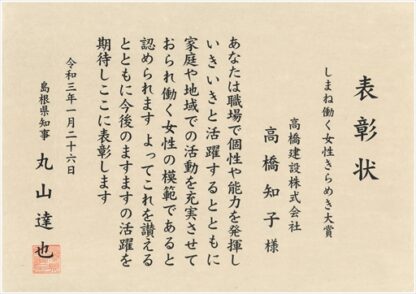 表彰状
しまね働く女性きらめき大賞
高橋建設株式会社
高橋知子様
あなたは職場で個性や能力を発揮し
いきいきと活躍するとともに
家庭や地域での活動を充実させて
おられ働く女性の模範であると
認められます よってこれを讃える
とともに今後のますますの活躍を
期待しここに表彰します
令和三年一月二十六日
島根県知事 丸山達也